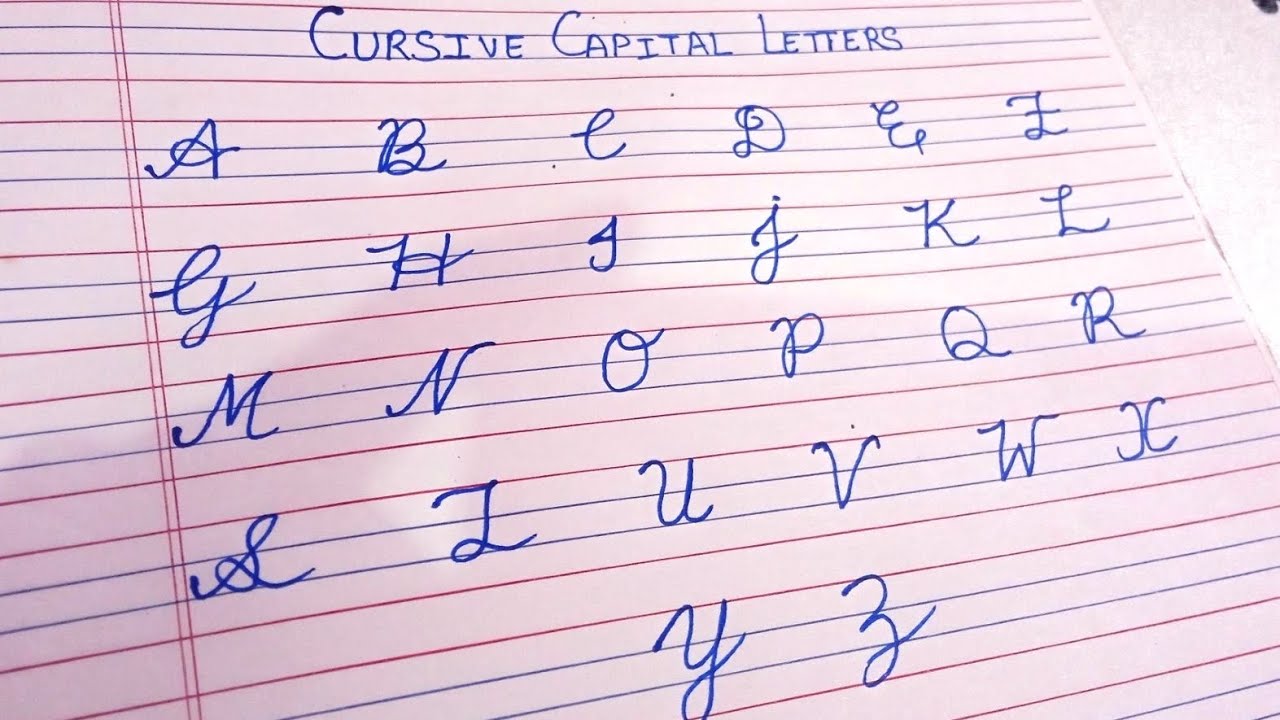 CURSIVE CAPITAL LETTERS
A B C D E F
G H I J K L
M N O P Q R
S T U V W X
Y Z